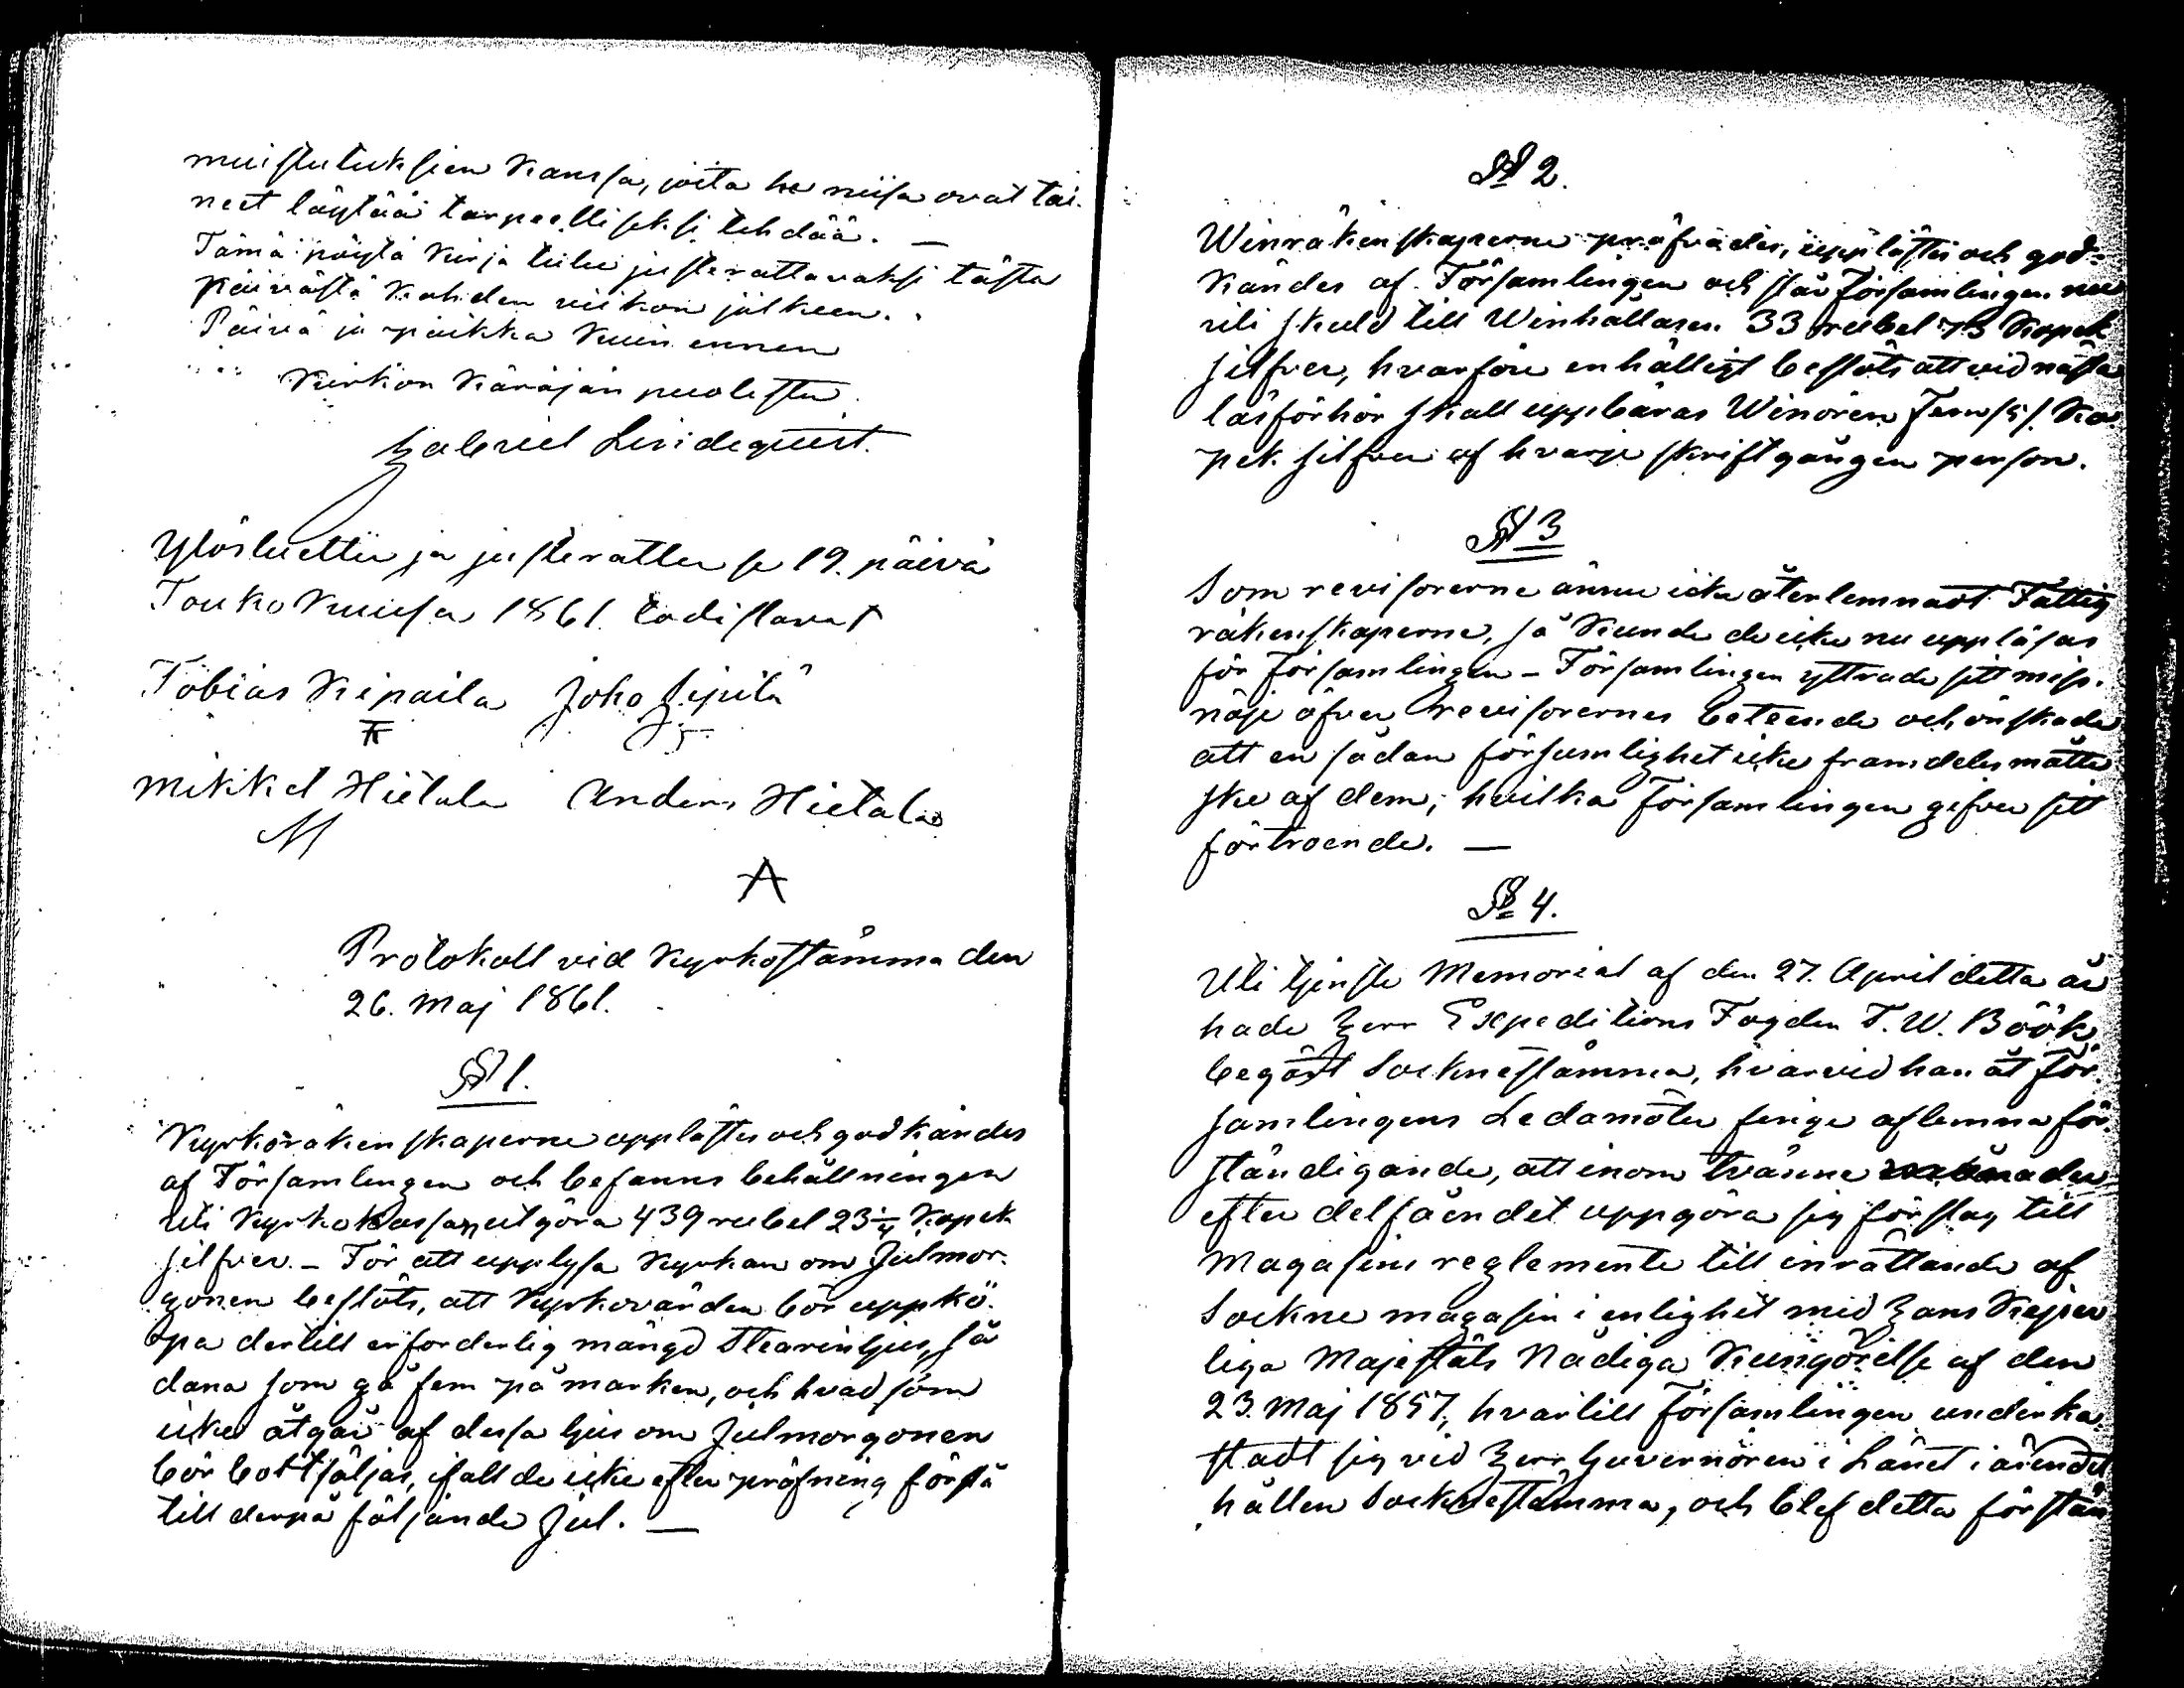 muistutuksien kanssa, joita he niisä ovat tai-
neet löytää tarpeelliseksi tehdää. —
Tämä pöytä kirja tulee justerattavaksi tästä
päivästä kahden viikon jälkeen.
Päivä ja paikka kuin ennen
Kirkon Käräjän puolesta
Gabriel Lindequist.
Ylösluettiin ja justerattiin se 19. päivä
Touko kuusa 1861. todistavat
Tobias Kipaila Joho Sipilä
Mikkel Hietala Anders Hietala
M
A
Protokoll vid Kyrkostämma den
26. Maj 1861.
§ 1.
Kyrkoräkenskaperne upplästes och godkändes
af Församlingen och befanns behållningen
uti Kyrkokassan utgöra 439 rubel 23 1/4 Kopek
silfver. – För att upplysa Kyrkan om Julmor-
gonen beslöts, att Kyrkovärden bör uppkö-
pa dertill erforderlig mängd Stearinljus, så
dana som gå fem på marken, och hvad som
icke åtgår af dessa ljus om Julmorgonen
bör bortsäljas, ifall de icke efter pröfning förslå
till derpå följande Jul. —
§ 2.
Winräkenskaperne pröfvades, upplästes och god-
kändes af Församlingen och står Församlingen nu
uti skuld till Winhållaren 33 rubel 73 Kopek
silfver, hvarföre enhälligt beslöts att vid nästa
läsförhör skall uppbäras Winören Fem /5/ Ko-
pek silfver af hvarje skriftgången person.
§ 3
Som revisorerne ännu icke återlemnadt Fattig
räkenskaperne, så kunde de icke nu uppläsas
för Församlingen – Församlingen yttrade sitt miss-
nöje öfver revisorernes beteende och önskade
att en sådan försumlighet icke framdeles måtte
ske af dem, hvilka Församlingen gifver sitt
förtroende. —
§ 4.
Uti tjenste Memorial af den 27. April detta år
hade Herr Expeditions Fogden T. W. Böök
begärt Socknestämma, hvarvid han åt För-
samlingens Ledamöter finge aflemna för-
ständigande, att inom tvänne månader
efter delfåendet uppgöra sig förslag till
Magasins reglemente till inrättande af
Sockne magasin i enlighet med Hans Kejser
liga Majestäts Nådiga Kungörelse af den
23. Maj 1857, hvartill Församlingen underka-
stadt sig vid Herr Guvernören i Länet i ärendet
hållen Socknestämma, och blef detta förstän